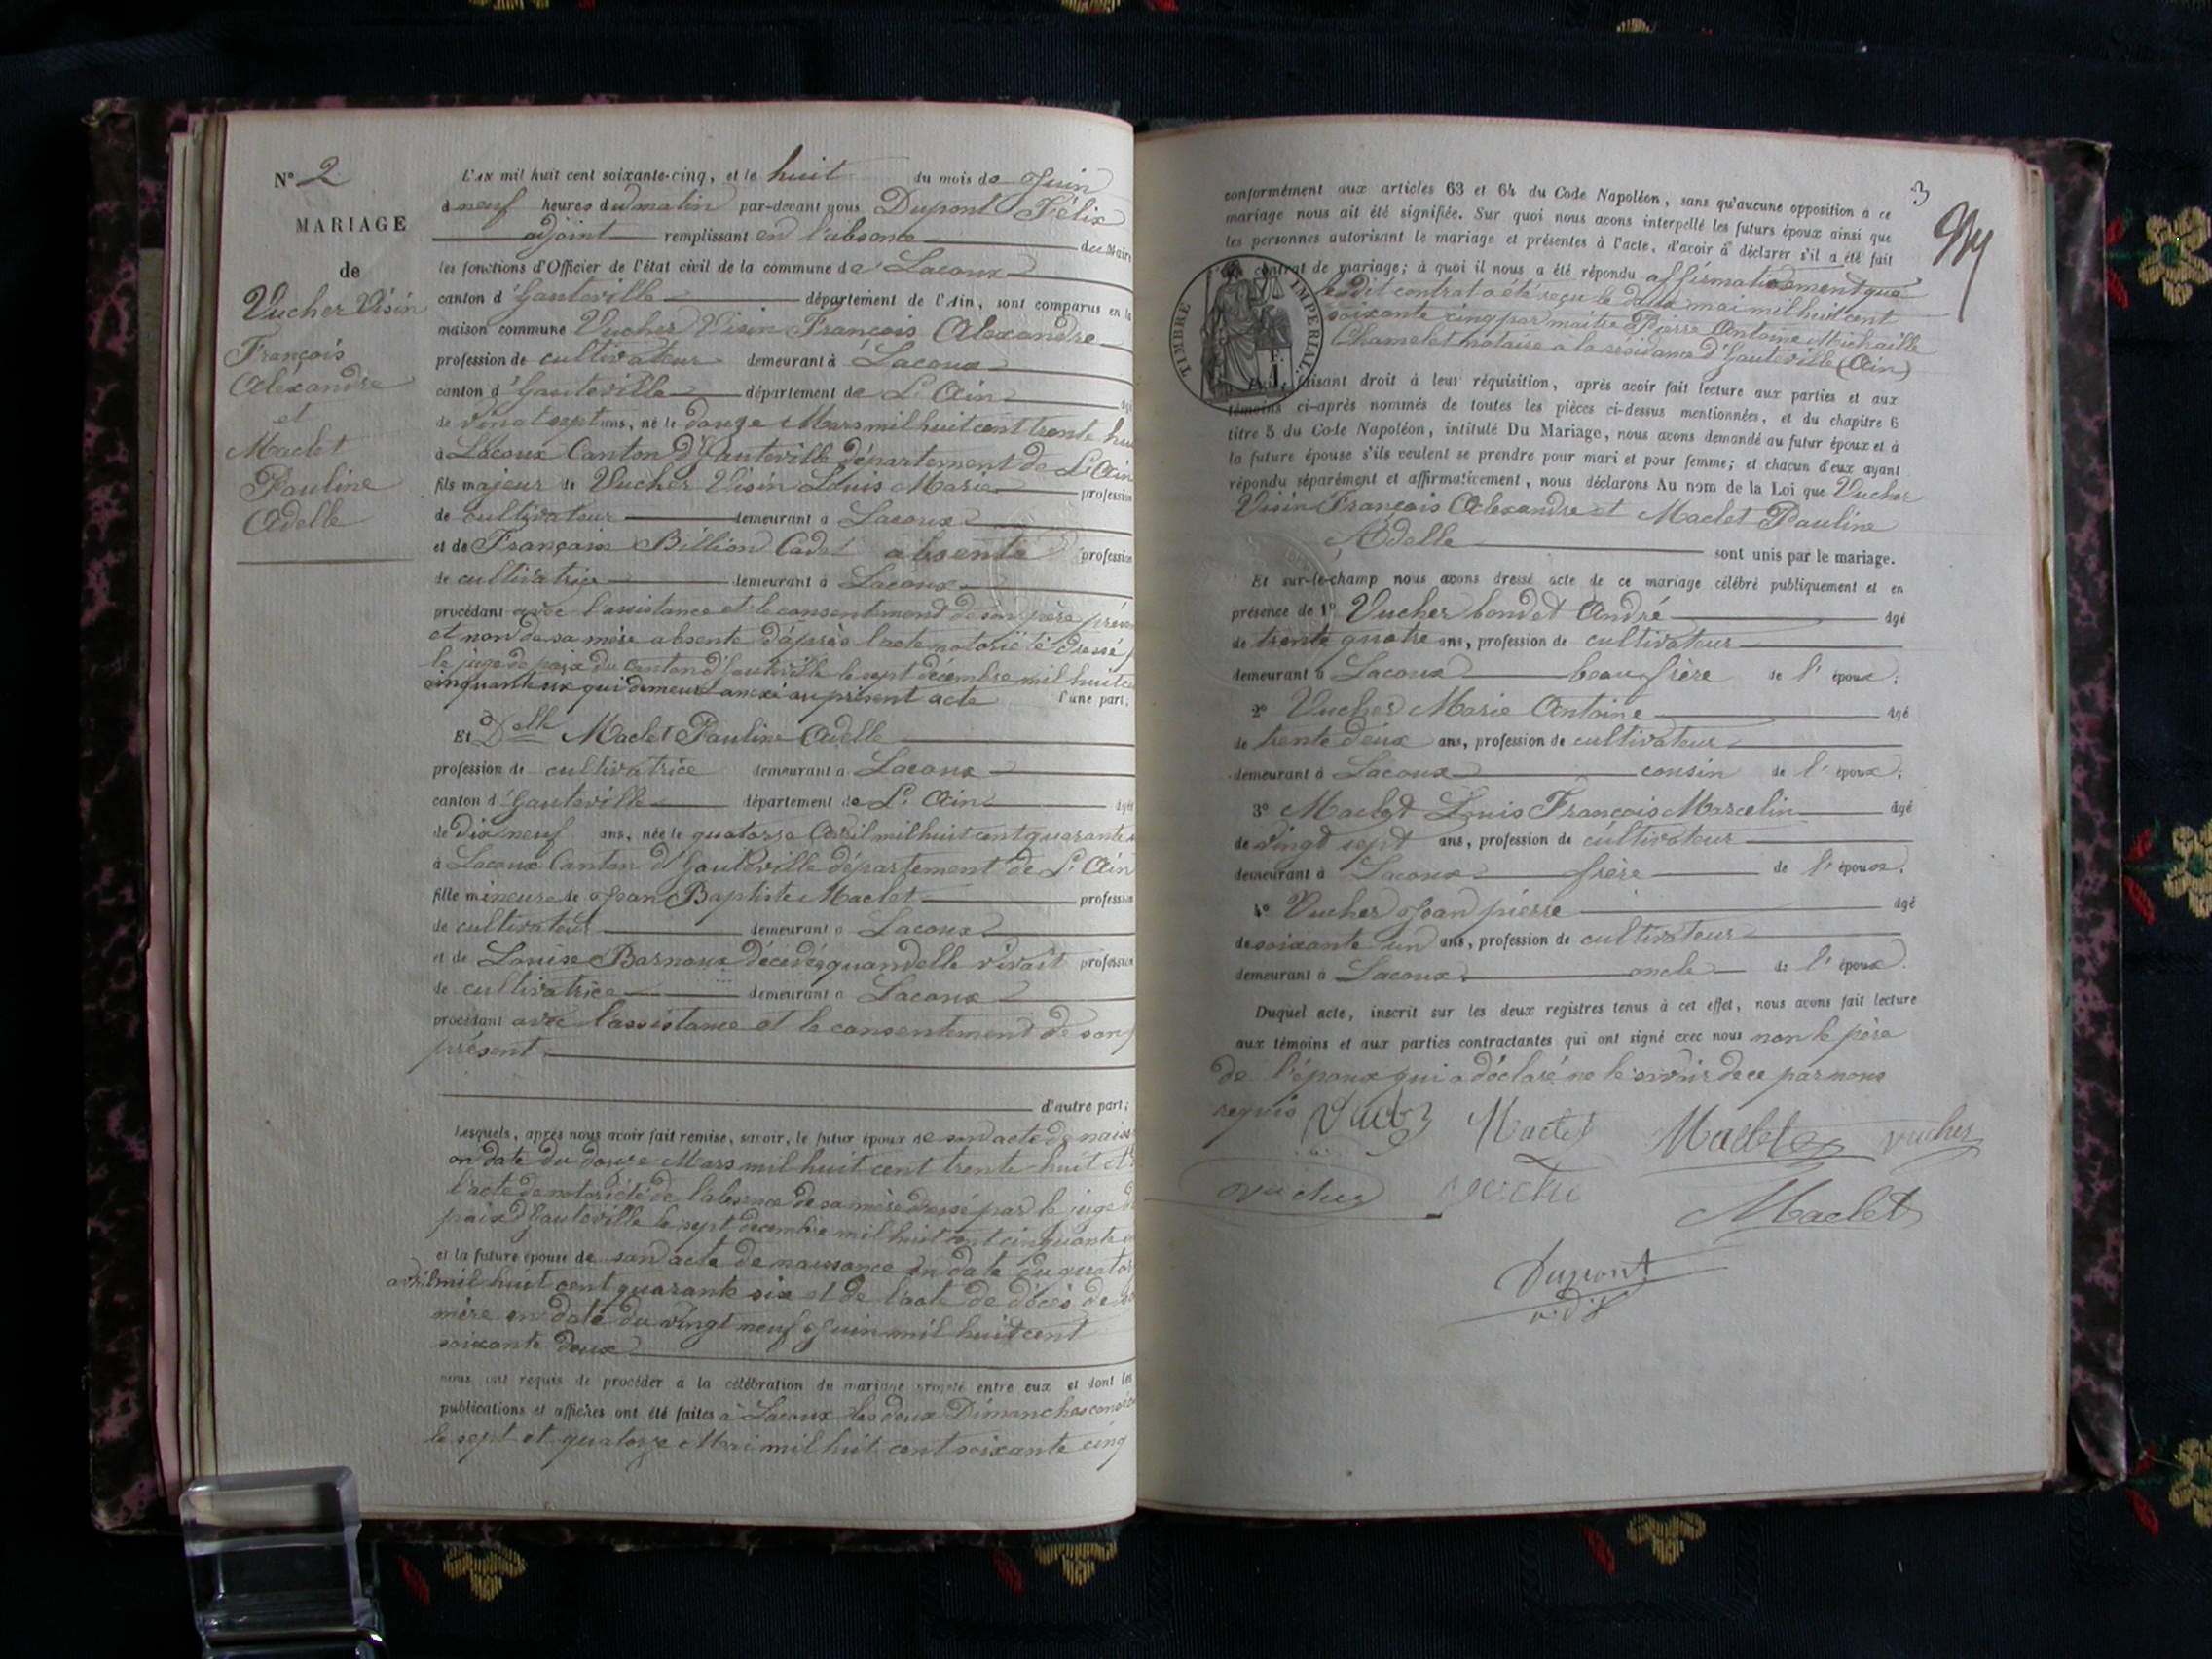 N° 2
MARIAGE
de
Vucher Visin
François
Alexandre
et
Maclet
Pauline
Adelle
L'AN mil huit cent soixante-cinq, et le huit du mois de Juin
à neuf heures du matin par-devant nous Dupont Félix
adjoint remplissant en l'absence du Maire
les fonctions d'Officier de l'état civil de la commune de Lacoux
canton d'hauteville département de l'Ain, sont comparus en la
maison commune Vucher Visin François Alexandre
profession de cultivateur demeurant à Lacoux
canton d'hauteville département de L'Ain âgé
de vingt sept ans, né le douze Mars mil huit cent trente hui
à Lacoux Canton d'hauteville département de L'Ain
fils majeur de Vucher Visin Louis Marie profession
de cultivateur demeurant à Lacoux
et de Françoise Billion Cadet absente profession
de cultivatrice demeurant à Lacoux
procédant avec l'assistance et le consentement de son père
et non de sa mère absente d'après l'acte notorièté dressé
le juge de paix du Canton d'hauteville le sept décembre mil huit
cinquante six qui demeure anexé au présent acte l'une part.
Et Delle Maclet Pauline Adelle
profession de cultivatrice demeurant à Lacoux
canton d'hauteville département de L'Ain âgée
de dix neuf ans, née le quatorze Avril mil huit cent quarante
à Lacoux Canton d'hauteville département de L'Ain
fille mineure de Jean Baptiste Maclet profession
de cultivateur demeurant à Lacoux
et de Louise Barnoux décédée quand elle vivait profession
de cultivatrice demeurant à Lacoux
procédant avec l'assistance et le consentement de son
présent
d'autre part;
Lesquels, après nous avoir fait remise, savoir, le futur époux de son acte de naiss
en date du douze Mars mil huit cent trente-huit et
l'acte de notoriété de l'absence de sa mère dressé par le juge
paix d'hauteville le sept décembre mil huit cent cinquante
et la future épouse de son acte de naissance en date du quator
avril mil huit cent quarante six et de l'acte de décès de
mère en date du vingt neuf Juin mil huit cent
soixante deux
nous ont requis de procéder à la célébration du mariage projeté entre eux et dont les
publications et affiches ont été faites à Lacoux les deux Dimanches
le sept et quatorze Mai mil huit cent soixante cinq
3
conformément aux articles 63 et 64 du Code Napoléon, sans qu'aucune opposition à ce
mariage nous ait été signifiée. Sur quoi nous avons interpellé les futurs époux ainsi que
les personnes autorisant le mariage et présentes à l'acte, d'avoir à déclarer s'il a été fait
contrat de mariage; à quoi il nous a été répondu affirmativement que
le dit contrat a été reçu le deux mai mil huit cent
soixante cinq par maître Pierre Antoine Michaille
Chamelet notaire à la résidence d'hauteville (Ain)
TIMBRE IMPERIAL
faisant droit à leur réquisition, après avoir fait lecture aux parties et aux
témoins ci-après nommés de toutes les pièces ci-dessus mentionnées, et du chapitre 6
titre 5 du Code Napoléon, intitulé Du Mariage, nous avons demandé au futur époux et à
la future épouse s'ils veulent se prendre pour mari et pour femme; et chacun d'eux ayant
répondu séparément et affirmativement, nous déclarons Au nom de la Loi que Vucher
Visin François Alexandre et Maclet Pauline
Adelle sont unis par le mariage.
Et sur-le-champ nous avons dressé acte de ce mariage célébré publiquement et en
présence de 1° Vucher bondet André âgé
de trente quatre ans, profession de cultivateur
demeurant à Lacoux beau frère de l'époux;
2° Vucher Marie Antoine âgé
de trente deux ans, profession de cultivateur
demeurant à Lacoux cousin de l'époux;
3° Maclet Louis François Marcelin âgé
de vingt sept ans, profession de cultivateur
demeurant à Lacoux frère de l'épouse;
4° Vucher Jean pierre âgé
de soixante un ans, profession de cultivateur
demeurant à Lacoux oncle de l'époux.
Duquel acte, inscrit sur les deux registres tenus à cet effet, nous avons fait lecture
aux témoins et aux parties contractantes qui ont signé avec nous non le père
de l'époux qui a déclaré ne le savoir de ce par nous
requis Maclet Maclet vucher
vucher Maclet
Dupont